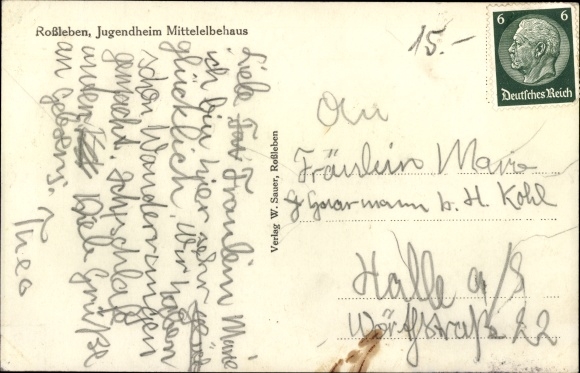 Roßleben, Jugendheim Mittelelbehaus
15.-
6 6
Deutsches Reich
Liebe Fräulein Marie
ich bin hier sehr
glücklich, wir haben
schon Wanderungen
gemacht. Ich schlafe
unten. Viele Grüße
an
Theo
Verlag W. Sauer, Roßleben
An
Fräulein Marie
b. H. Kohl
Halle a/S
22